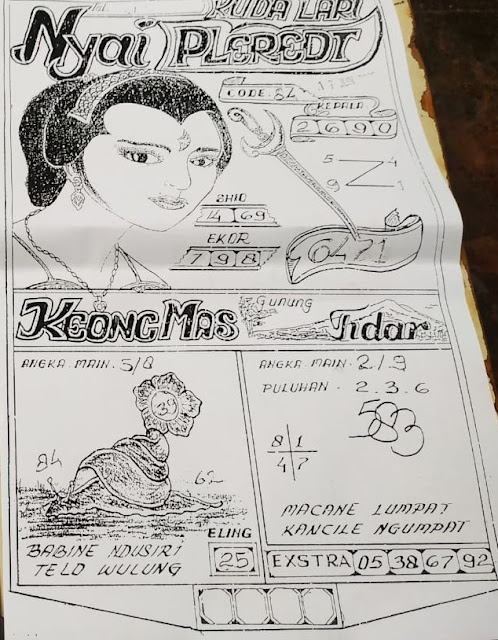 KUDA LARI
Nyai PLEREDT
CODE. 3Z
KEPALA
2 6 9 0
5 4
9 1
SHIO
14 69
EKOR
7 9 8
6471
KEONG MAS
Gunung
Tidar
ANGKA MAIN. 5/8
39
84
62
BABINE NDUSIRI
TELO WULUNG
ELING
25
ANGKA MAIN. 2/9
PULUHAN. 2.3.6
583
8 1
4 7
MACANE LUMPAT
KANCILE NGUMPAT
EXSTRA 05 38 67 92